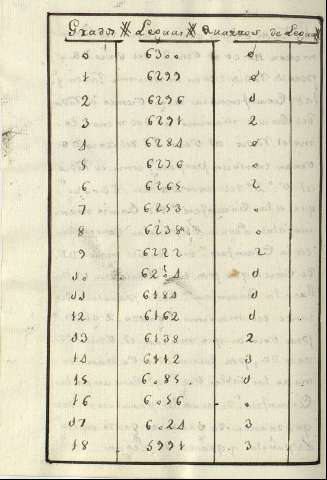 Grados Leguas Quartos de Leguas
0 6300 0
1 6299 0
2 6296 1
3 6291 2
4 6284 0
5 6276 0
6 6265 2
7 6253 0
8 6238 0
9 6222 2
10 6204 1
11 6184 1
12 6162 1
13 6138 2
14 6112 3
15 6085 1
16 6056 0
17 6024 3
18 5991 3